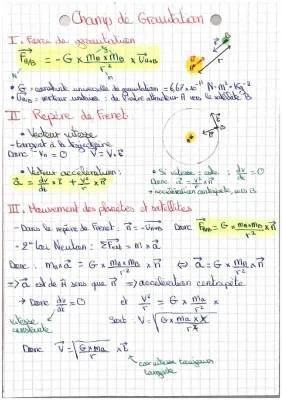 Champ de Gravitation
I. Force de gravitation
F⃗A/B = -G × mA × mB / r² × u⃗A→B
N kg m
• G = constante universelle de gravitation = 6,67 × 10⁻¹¹ N·m²·kg⁻²
• u⃗A→B = vecteur unitaire : de l'astre attracteur A vers le satellite B
II. Repère de Frenet
• Vecteur vitesse :
- tangent à la trajectoire
Donc Vn = 0 V⃗ = V·t⃗
• Vecteur accélération :
a⃗ = dv/dt × t⃗ + v²/r × n⃗
• Si vitesse = cste : dv/dt = 0
Donc a⃗ = v²/r × n⃗
→ accélération centripète
III. Mouvement des planètes et satellites
- Dans le repère de Frenet : n⃗ = -u⃗A→B Donc F⃗A/B = G × mA × mB / r² × n⃗
- 2ᵉ Loi Newton : ΣF⃗ext = m × a⃗
Donc : mB × a⃗ = G × mA × mB / r² × n⃗ ⇔ a⃗ = G × mA / r² × n⃗
⇒ a⃗ est de même sens que n⃗ ⇒ accélération centripète
→ Donc dv/dt = 0 et V²/r = G × mA / r²
vitesse constante
Soit : V = √(G × mA × r / r²)
Donc V⃗ = √(G × mA / r) × t⃗
car vitesse toujours
tangente